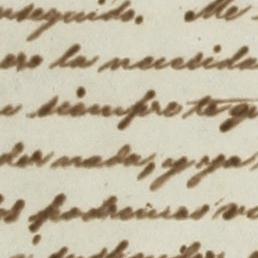 nseguido. Me
ero la necesida
siempre te qu
der nada, y ya
podremos v